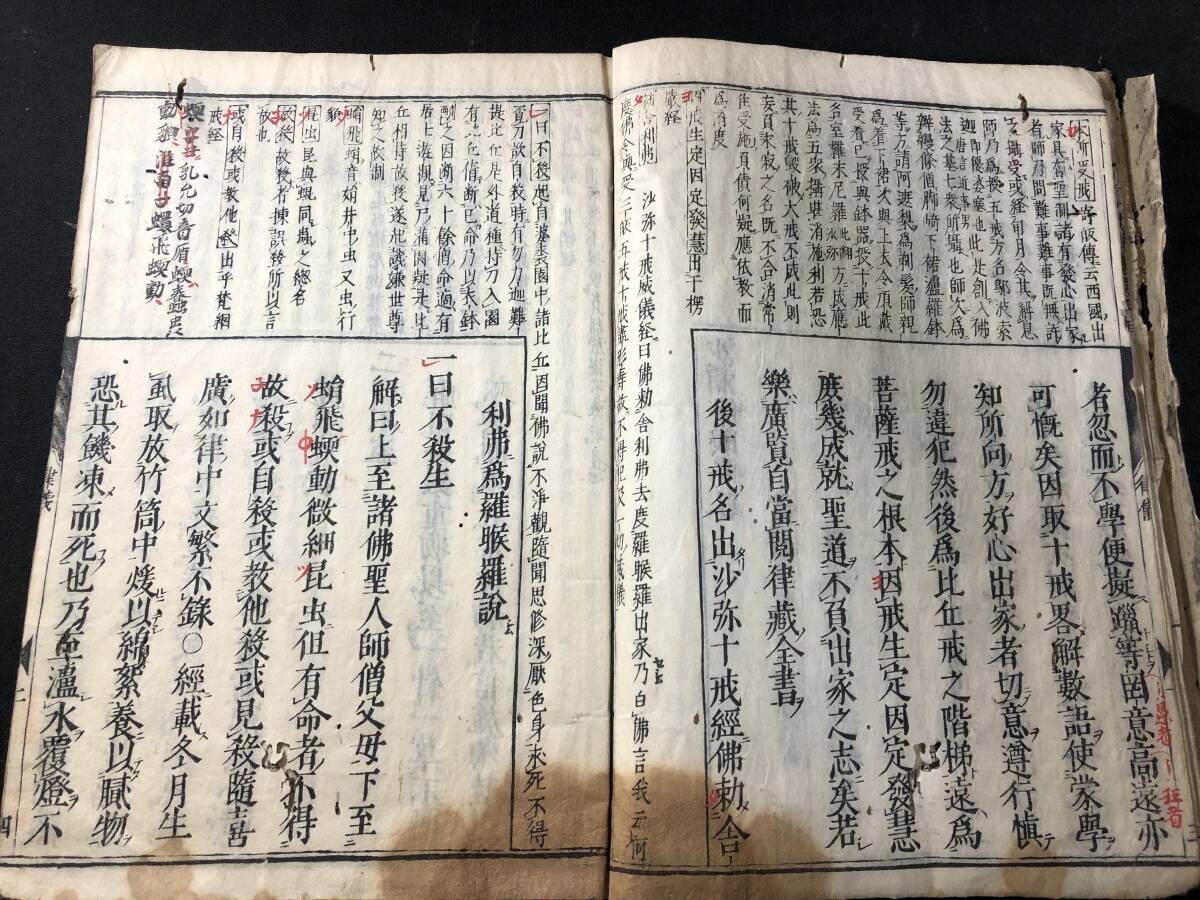 本所受戒 寄皈傳云西國出
家具有聖制諸有發心出家
者師乃問難事難事既無許
攝受或経旬月令其解息
師乃爲授五戒方名鄔波索
迦唐言近事男即優婆塞也此是創入佛
法之基七衆所攝也師次爲
辨縵條僧脚崎下裙濾羅鉢
等方請阿遮梨爲剃髮師親
爲着下裙次與上衣令頂戴
受着已授與鉢器授十戒此
名室羅末尼羅此翻沙弥方成應
法爲五衆攝堪消施利若恐
其十戒毀破大戒不成此則
妄負求寂之名既不合消常
住受施負債何疑應依教而
爲濟度
因戒生定因定發慧 出于楞
嚴経
勅舍利弗 沙弥十戒威儀経曰佛勅舍利弗去度羅睺羅出家乃白佛言我云何
度佛令與受三皈五戒十戒盡形壽故不得犯次一切威儀
者忽而不學便擬躐等罔意高遠亦
可慨矣因取十戒畧解數語使蒙學
知所向方好心出家者切意遵行慎
勿違犯然後爲比丘戒之階梯遠爲
菩薩戒之根本因戒生定因定發慧
庶幾成就聖道不負出家之志矣若
樂廣覧自當閱律藏全書
後十戒名出沙弥十戒經佛勅舍
一曰不殺 起自婆裘園中諸比丘因聞佛說不淨觀隨聞思修深厭色身求死不得
覓刀欲自殺時有勿力迦難
提比丘是外道種持刀入園
有比丘倩断已命乃以衣鉢
酬之因断六十餘僧命適有
居士遊觀見乃滿園疑是比
丘相特故殺遂起譏嫌世尊
知之故制
蜎飛 蜎音娟井中虫又虫行
貌
昆虫 昆與蜫同蟲之総名
故殺 故殺者揀誤殺所以言
故也
或自殺或教他殺 出乎梵網
戒経
蝡 乳允切音盾蝡春蟲出
動狼 淮南子蠉飛蝡動
利弗爲羅睺羅說
一曰不殺生
解曰上至諸佛聖人師僧父母下至
蜎飛蝡動微細昆虫但有命者不得
故殺或自殺或教他殺或見殺隨喜
廣如律中文繁不錄○經載冬月生
虱取放竹筒中煖以綿絮養以膩物
恐其饑凍而死也乃至濾水覆燈不
律儀
四